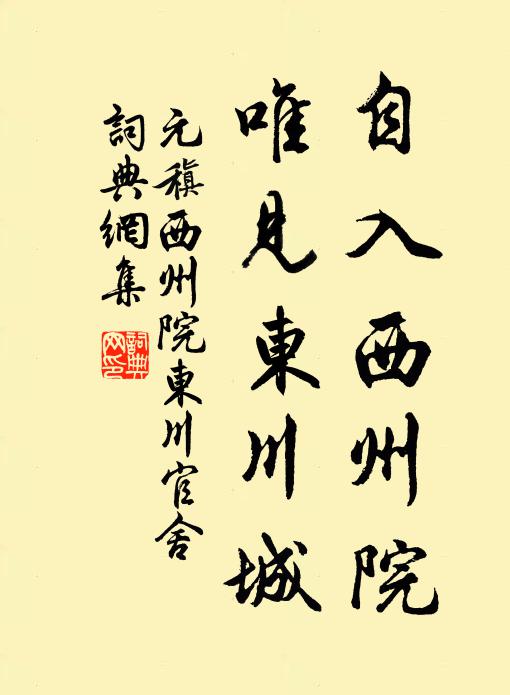 自入西州院
唯見東川城
元稹西州院東川官舍
詞典網集
詞典
网印